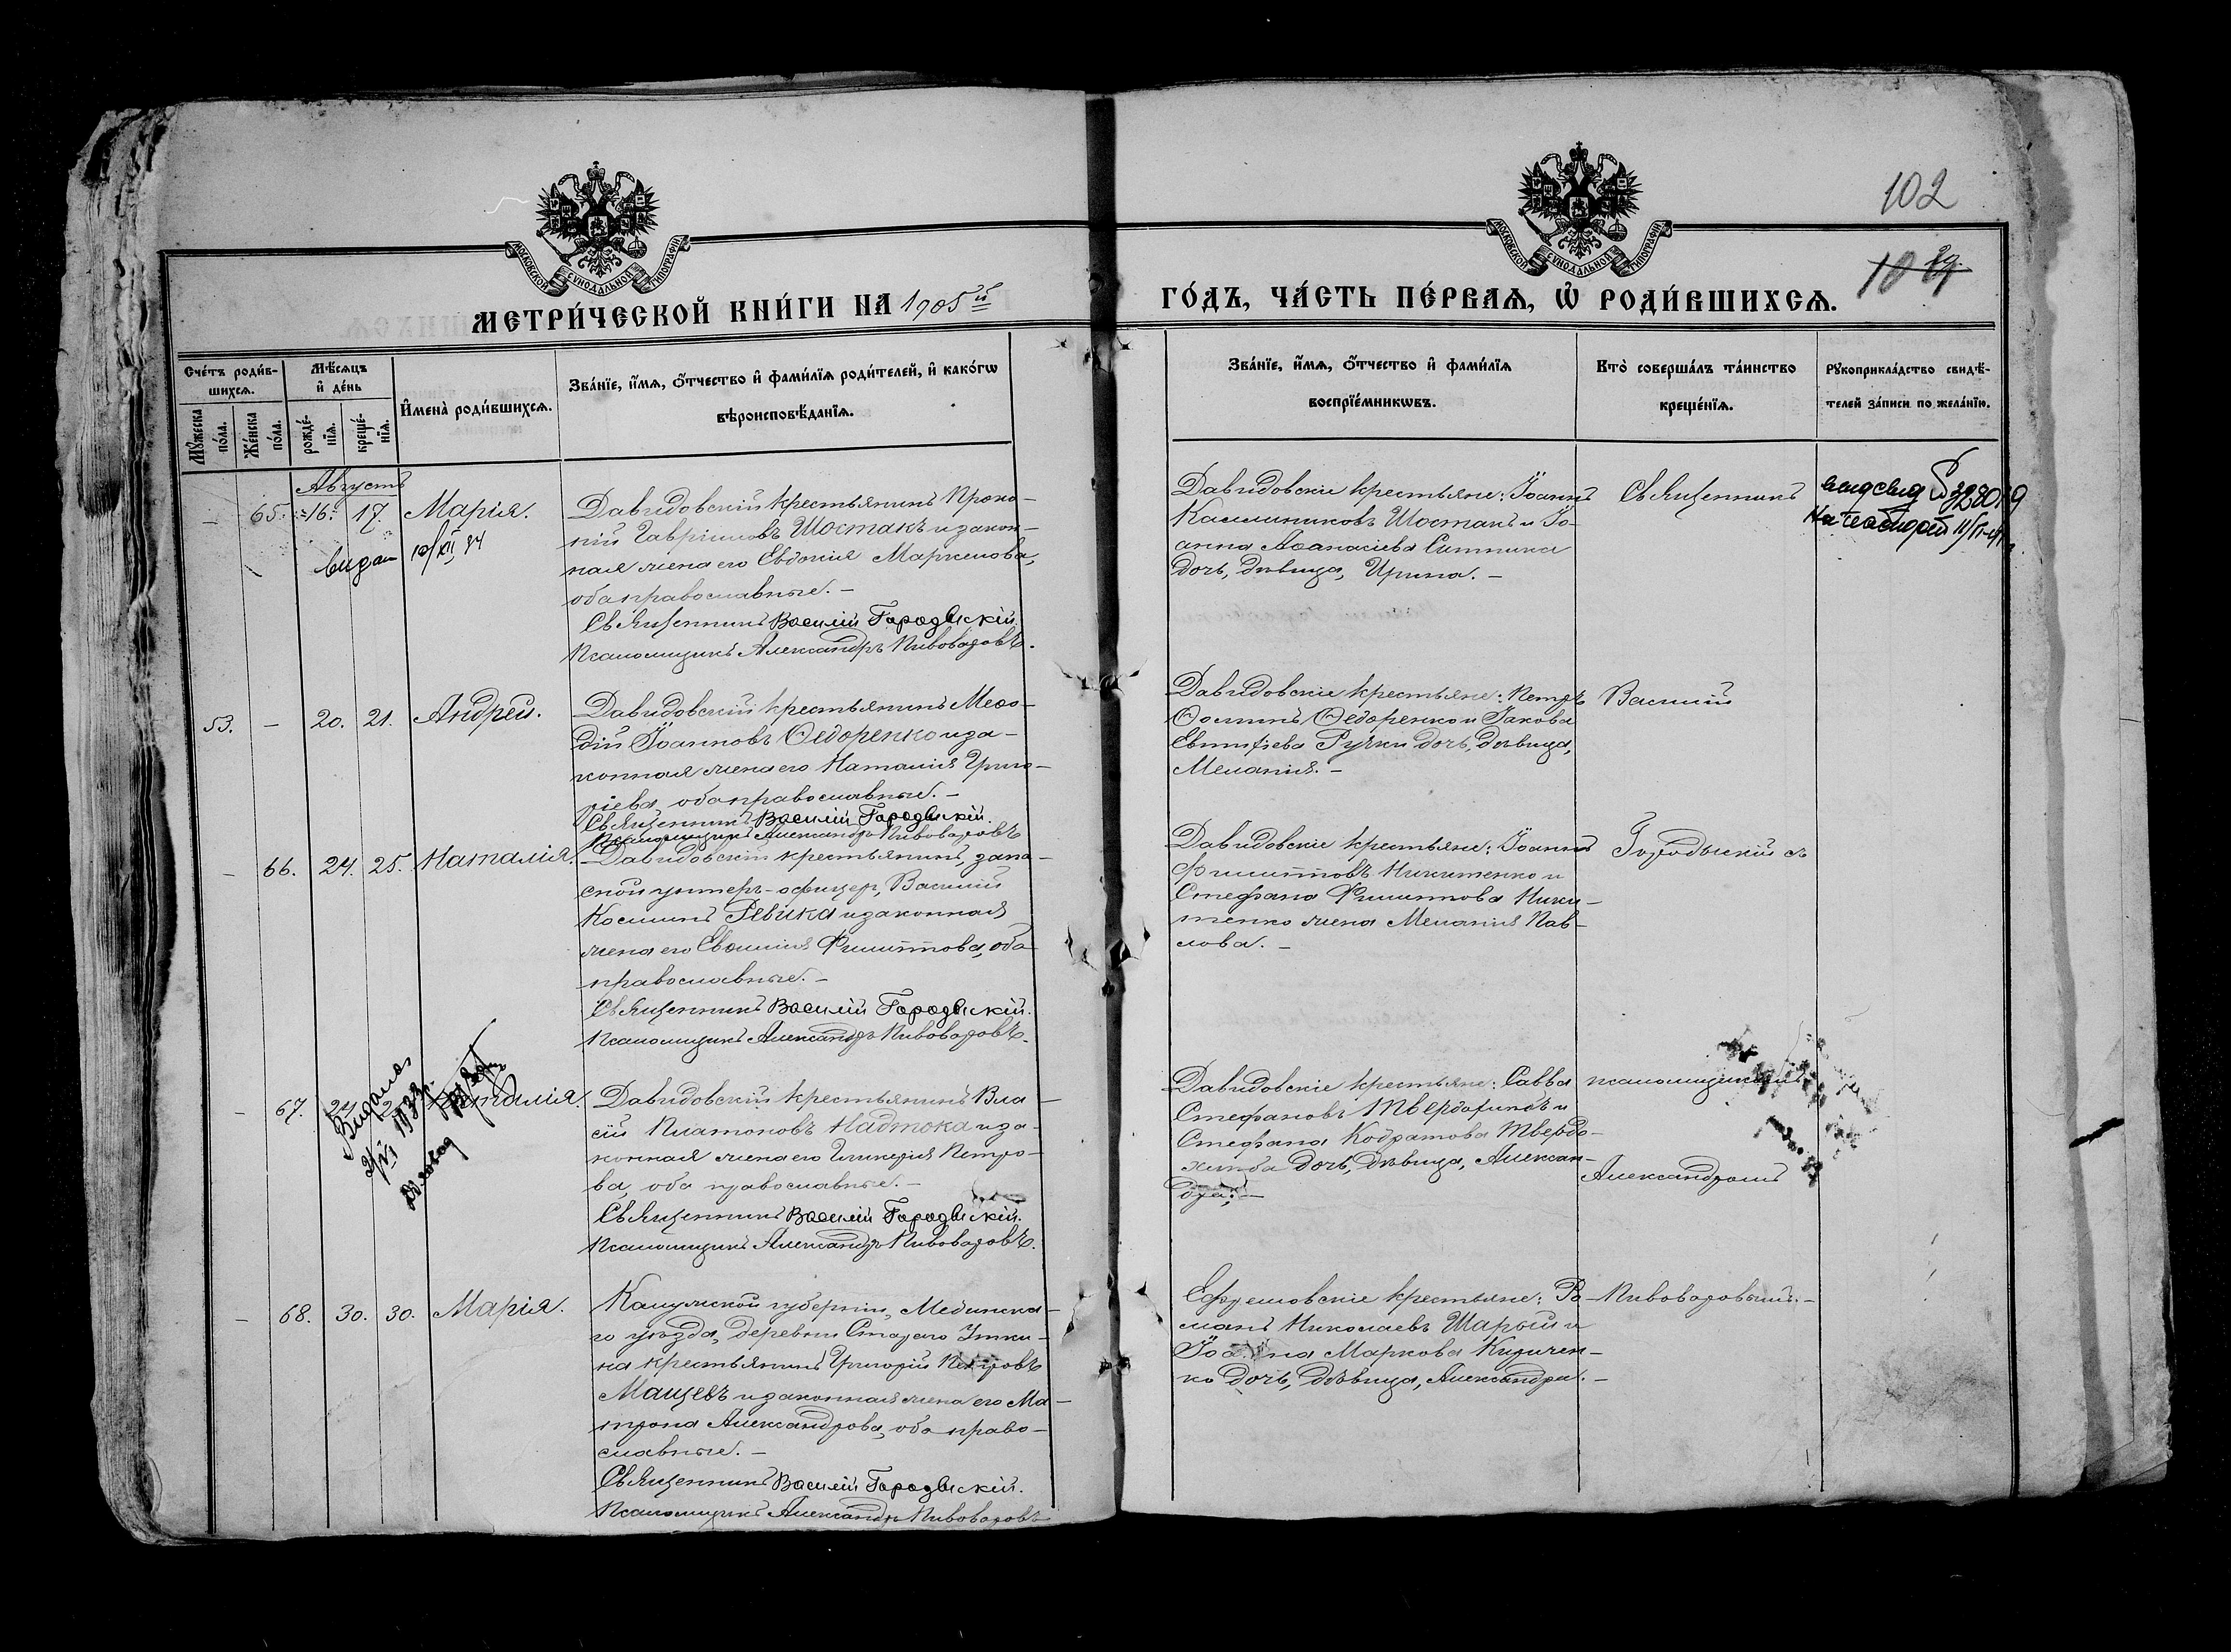 102
МОСКОВСКОЙ СѴНОДАЛЬНОЙ ТИПОГРАФІИ
МОСКОВСКОЙ СѴНОДАЛЬНОЙ ТИПОГРАФІИ
МЕТРИ́ЧЕСКОЙ КНИ́ГИ НА 1905й
ГО́ДЪ, ЧА́СТЬ ПЕ́РВАѦ, Ѡ҆ РОДИ́ВШИХСѦ.
Сче́тъ роди́в-
шихсѧ.
Мꙋ́жеска
по́ла.
Же́нска
по́ла.
Мѣ́сѧцъ
и҆ де́нь
рожде́-
нїѧ.
креще́-
нїѧ.
И҆мена̀ роди́вшихсѧ.
Зва́нїе, и҆́мѧ, ѻ҆́тчество и҆ фами́лїѧ роди́телей, и҆ како́гѡ
вѣроисповѣ́данїѧ.
Зва́нїе, и҆́мѧ, ѻ҆́тчество и҆ фами́лїѧ
воспрїе́мникѡвъ.
Кто̀ соверша́лъ та́инство
креще́нїѧ.
Рꙋкоприкла́дство свидѣ́-
телей за́писи по жела́нїю.
Августъ
65. 16. 17. Марія.
Давидовскій крестьянинъ Проко-
пій Гавріиловъ Шостакъ и закон-
ная жена его Евдокія Маркелова,
оба православные. —
Священникъ Василій Городыскій.
Псаломщикъ Александръ Пивоваровъ.
Давидовскіе крестьяне: Іоаннъ
Каллиниковъ Шостакъ и Іо-
анна Аѳанасіева Ситника
дочь, дѣвица, Ирина. —
Священникъ
53. — 20. 21. Андрей.
Давидовскій крестьянинъ Меѳо-
дій Іоанновъ Ѳедоренко и за-
конная жена его Наталія Григо-
ріева, оба православные. —
Священникъ Василій Городыскій.
Псаломщикъ Александръ Пивоваровъ
Давидовскіе крестьяне: Петръ
Ѳоминъ Ѳедоренко и Іакова
Ручки дочь, дѣвица,
Меланія. —
Василій
— 66. 24. 25. Наталія.
Давидовскій крестьянинъ, запа-
сной унтеръ-офицеръ, Василій
Косминъ Ревика и законная
жена его Евѳимія Филиппова, оба
православные. —
Священникъ Василій Городыскій.
Псаломщикъ Александръ Пивоваровъ.
Давидовскіе крестьяне: Іоаннъ
Филипповъ Никитенко и
Стефана Филиппова Ники-
тенко жена Меланія Пав-
лова. —
Городыскій съ
— 67. Наталія.
Давидовскій крестьянинъ Вла-
сій Платоновъ Надтока и за-
конная жена его Гликерія Петро-
ва, оба православные. —
Священникъ Василій Городыскій.
Псаломщикъ Александръ Пивоваровъ.
Давидовскіе крестьяне: Савва
Стефановъ Твердохлѣбъ и
Стефана Кодратова Твердо-
хлѣба дочь, дѣвица, Алексан-
дра; —
псаломщикомъ
Александромъ
— 68. 30. 30. Марія.
Калужской губерніи, Медынска-
го уѣзда, деревни Стараго Утки-
на крестьянинъ Григорій Петровъ
Мащевъ и законная жена его Ма-
трона Александрова, оба право-
славные. —
Священникъ Василій Городыскій.
Псаломщикъ Александръ Пивоваровъ
крестьяне: Ро-
манъ Николаевъ Шарый и
Іоанна Маркова Киричен-
ко дочь, дѣвица, Александра. —
Пивоваровымъ. —